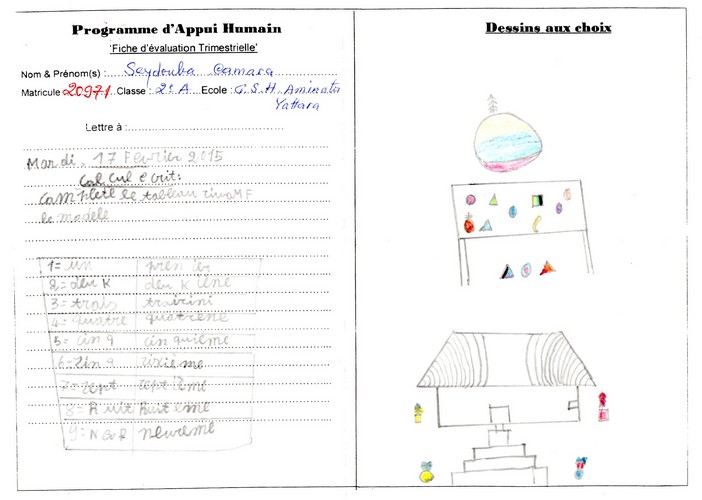 Programme d'Appui Humain
'Fiche d'évaluation Trimestrielle'
Nom & Prénom(s) : Seydouba Camara
Matricule 20971 Classe : 2e A Ecole : G.S.H. Aminata
Yattara
Lettre à :
Mardi, 17 Février 2015
Calcul ecrit:
le modele
1= un premier
2= deu K deu K ième
3= trois
4= quatre quatreme
5= cin q cin quieme
sixième
7= sept septième
8= Huit huit eme
9= neuveme
Dessins aux choix